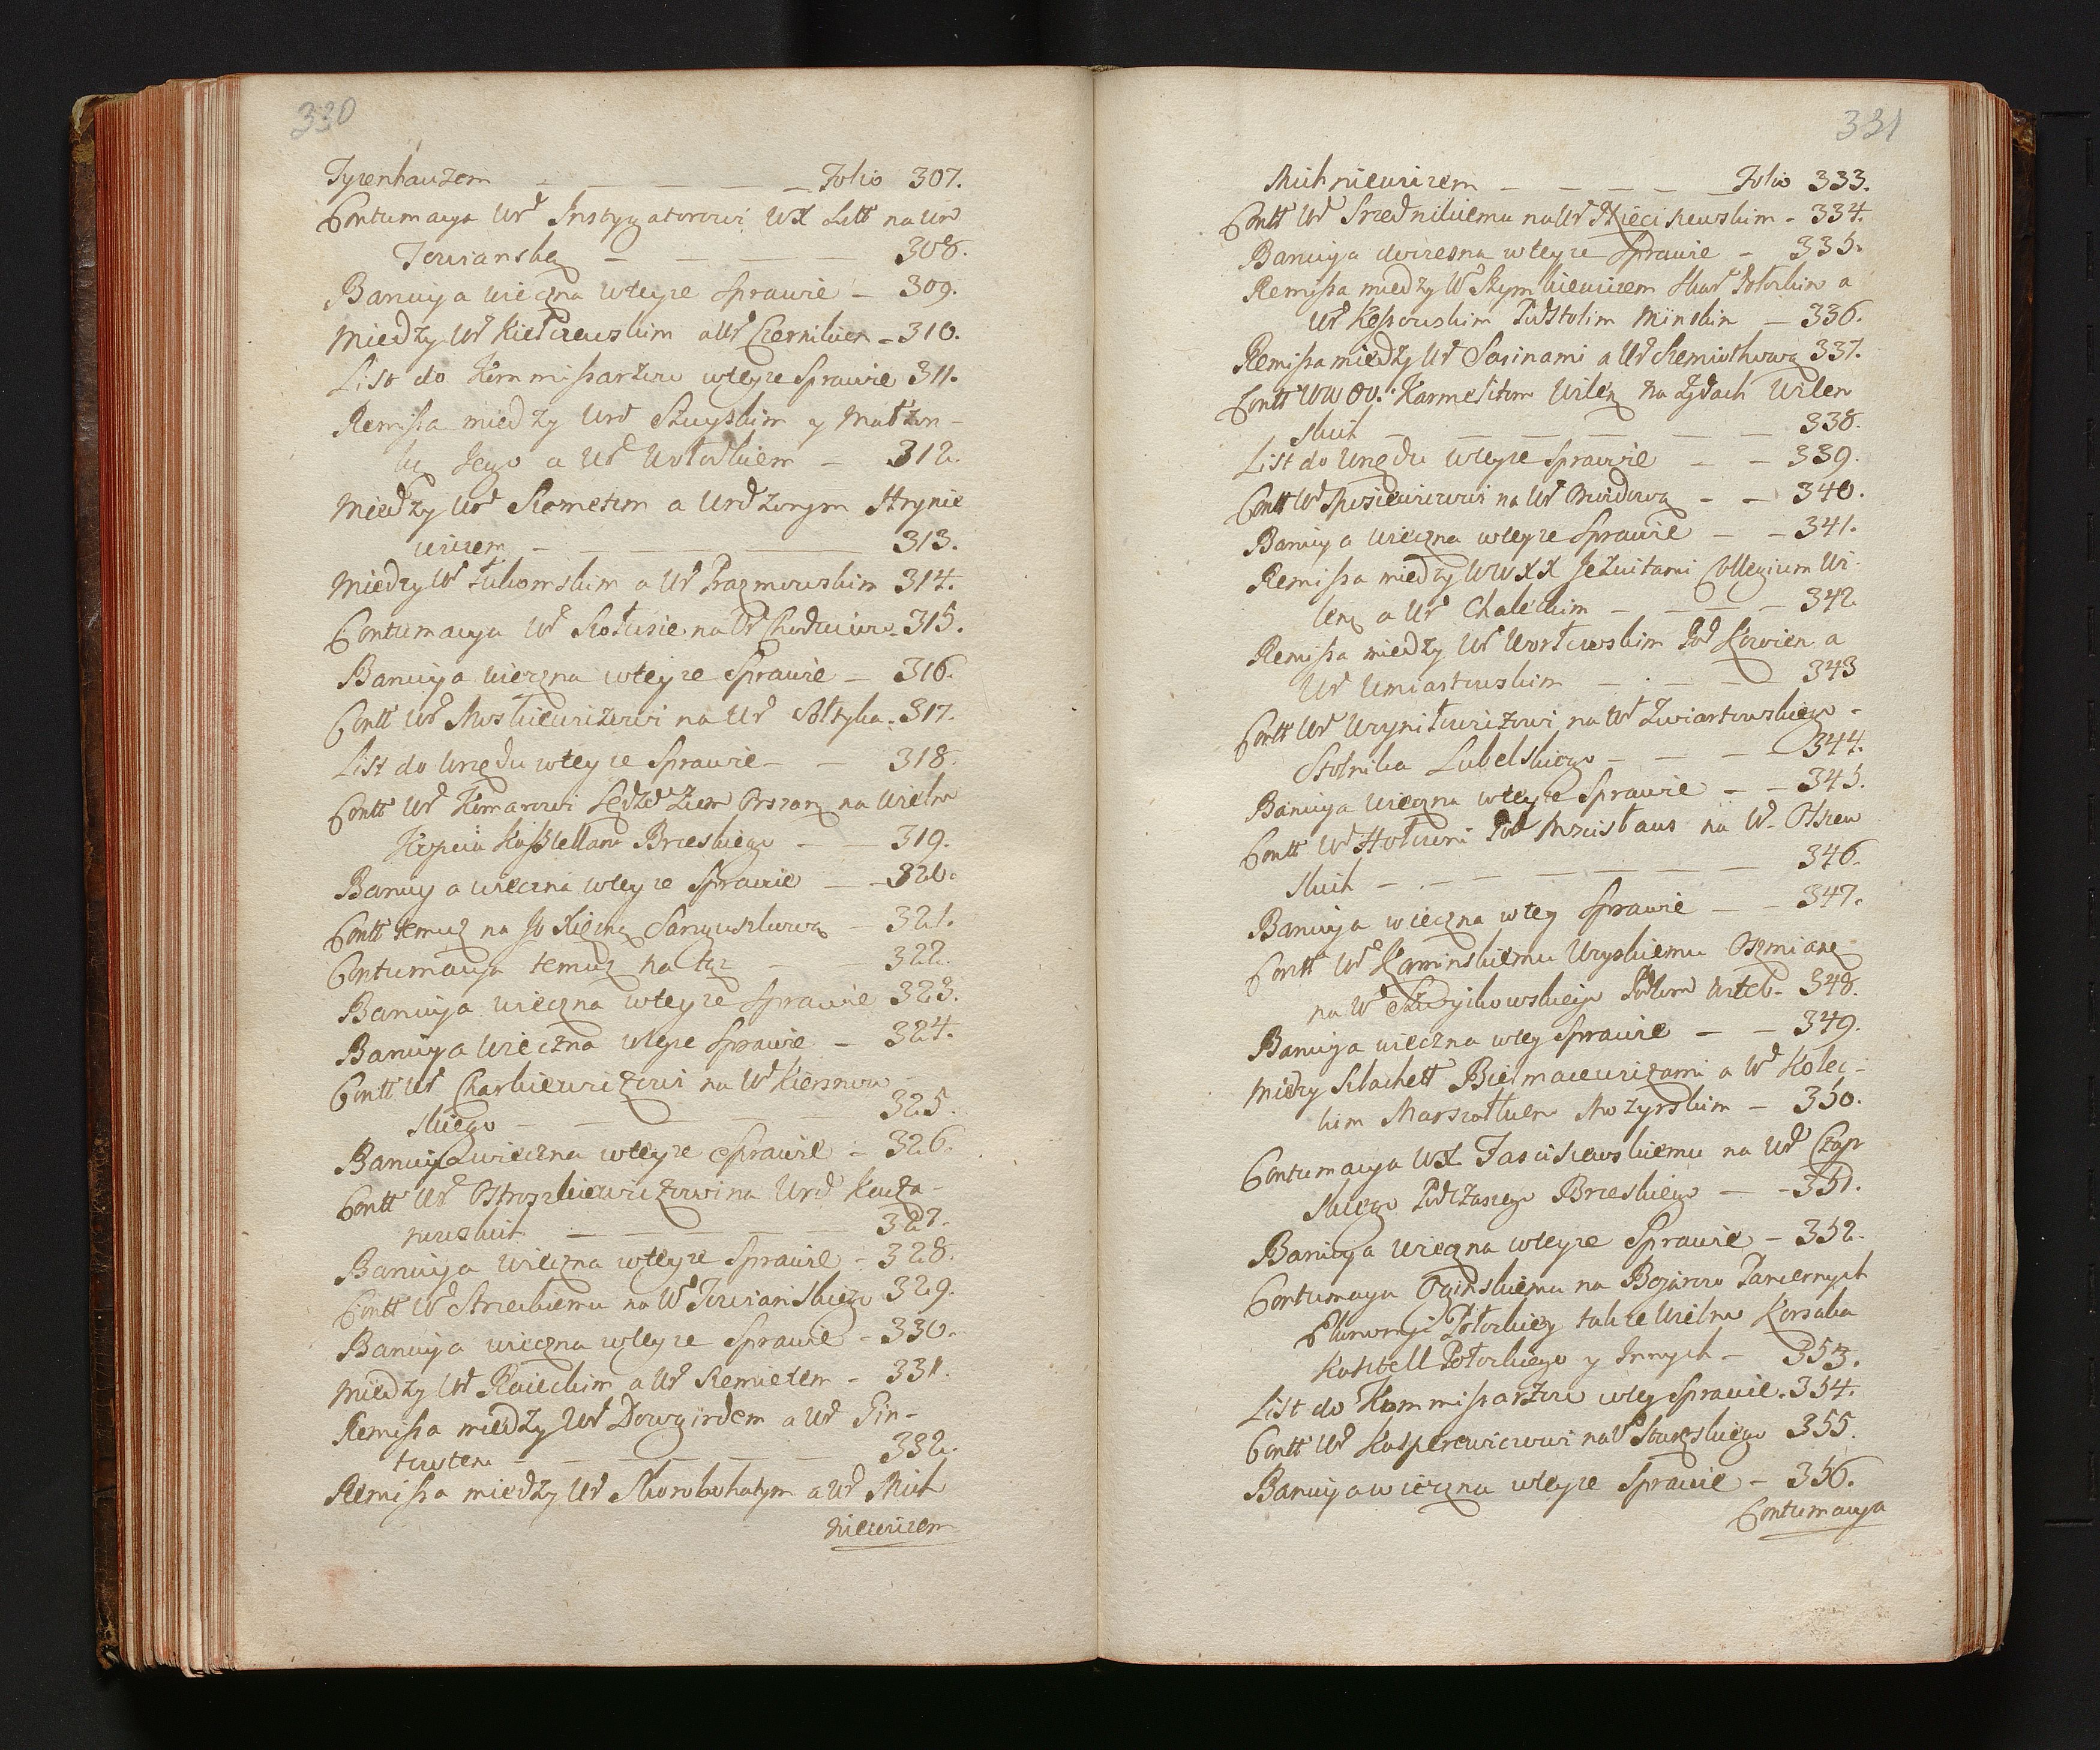 330
Tyzenhauzem — — — — Folio 307.
Contumacya Urd Instygatorowi WX Litt na Urd
Towianską — — — — 308.
Bannicya wieczna w teyze Sprawie — 309.
Miedzy Ur Kiełczewskim a Ur Czernikiem — 310.
List do Kommissarzow w teyze Sprawie 311.
Remissa miedzy Urd Szuyskim y Małżon-
ką Jego a Ur Wołodkiem — 312.
Miedzy Urd Kometem a Urdzonym Hrynie
wiczem — — — — 313.
Miedzy Ur Łukomskim a Ur Prazmowskim 314.
Contumacya Ur Kołusie na Ur Chodkiewi- 315.
Bannicya wieczna w teyze Sprawie — 316.
Contt Ur Moskiewiczowi na Urd Sołtyka. 317.
List do Urzędu w teyze Sprawie — — 318.
Contt Ur Komarowi Sędze Ziem Orszan na Wielm
Kasztellana Brzeskiego — — 319.
Bannicya wieczna w teyze Sprawie — 320.
Contt temuz na Jo Xięzną Sanguszkową — 321.
Contumacya temuz na tęz — — 322.
Bannicya wieczna w teyze Sprawie 323.
Bannicya wieczna w teyze Sprawie — 324.
Contt Ur Charkiewiczowi na Ur Kiersnow
skiego — — — — 325.
Bannicya wieczna w teyze Sprawie — 326.
Contt Ur Ostroszkiewiczowi na Urd Kacza-
nowskich — — — — 327.
Bannicya wieczna w teyze Sprawie — 328.
Contt Ur Strzeckiemu na W Towianskiego 329.
Bannicya wieczna w teyze Sprawie — 330.
Miedzy Ur Raieckim a Ur Remietem — 331.
Remissa miedzy Urd Dowgirdem a Urd Gin-
towtem — — — — 332.
Remissa miedzy Ur Skorobohatym a Ur Mich
niewiczem
331
Michniewiczem — — — — — Folio 333.
Contt Ur Srzednickiemu na Ur Mięciszewskim — 334.
Bannicya doczesna w teyze Sprawie — 335.
Remissa miedzy W Szymkiewiczem Skar Połockim a
Ur Kossowskim Podstolim Minskim — 336.
Remissa miedzy Ur Sasinami a Ur Siemiothową 337.
Contt WW OO. Karmelitom Wilen na Zydach Wilen
skich — — — — — 338.
List do Urzędu w teyze Sprawie — — 339.
Contt Ur Mosiewiczowi na Ur Owidową — — 340.
Bannicya wieczna w teyze Sprawie — — 341.
Remissa miedzy WWXX Jezuitami Collegium Wi-
leń a Ur Chaleckim — — — — 342
Remissa miedzy Ur Worłowskim Pod Kowien a
Ur Umiastowskim — — — 343
Contt Ur Uryniłowiczowi na W Zwiartowskiego -
Stolnika Lubelskiego — — — — 344.
Bannicya wieczna w teyze Sprawie — — 345.
Contt Ur Hołowni Pod Mscisław na W. Olszew
skich — — — — — — 346.
Bannicya wieczna w tey Sprawie — — 347.
Contt Ur Kaminskiemu Uryskiemu Oszmian
na W Szczyikowskiego Witeb - 348.
Bannicya wieczna w tey Sprawie — — 349.
Miedzy Szlachett Bielmacewiczami a W Kołec-
kim Marszałkiem Mozyrskim — 350.
Contumacya WX Jasciszewskiemu na Ur Czap
skiego Podczaszego Brzeskiego — — 351.
Bannicya wieczna w teyze Sprawie — 352.
Contumacya Oginskiemu na Bojarow Pancernych
Ekonomji Połockiey takze Wielm Korsaka
Kasztell Połockiego y Innych — 353.
List do Kommissarzow w tey Sprawie. 354.
Contt Ur Kasperowiczowi na Ur Skarzskiego 355.
Bannicya wieczna w teyze Sprawie — 356.
Contumacya